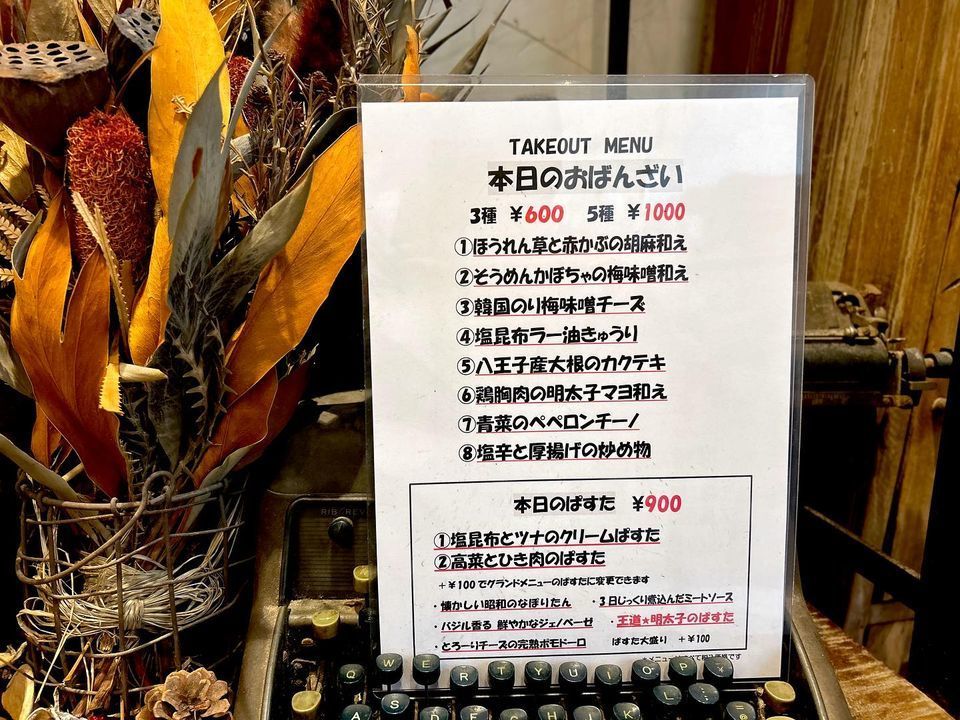 TAKEOUT MENU
本日のおばんざい
3種 ￥600 5種 ￥1000
①ほうれん草と赤かぶの胡麻和え
②そうめんかぼちゃの梅味噌和え
③韓国のり梅味噌チーズ
④塩昆布ラー油きゅうり
⑤八王子産大根のカクテキ
⑥鶏胸肉の明太子マヨ和え
⑦青菜のペペロンチーノ
⑧塩辛と厚揚げの炒め物
本日のぱすた ￥900
①塩昆布とツナのクリームぱすた
②高菜とひき肉のぱすた
＋￥100でグランドメニューのぱすたに変更できます
・懐かしい昭和のなぽりたん ・3日じっくり煮込んだミートソース
・バジル香る 鮮やかなジェノベーゼ ・王道★明太子のぱすた
・とろーりチーズの完熟ポモドーロ ぱすた大盛り ＋￥100
Q W E R T Y U I O P
A S D F G H J K L